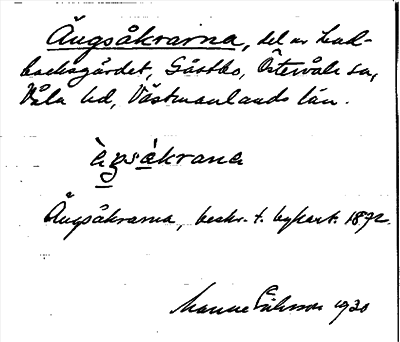 Ängsåkrarna, del av Lund-
backsgärdet, Gåstbo, Östervåla sn,
Våla hd, Västmanlands län.
àgsákrana
Ängsåkrarna, beskr. t. bykart. 1872.
Manne Eriksson 1930